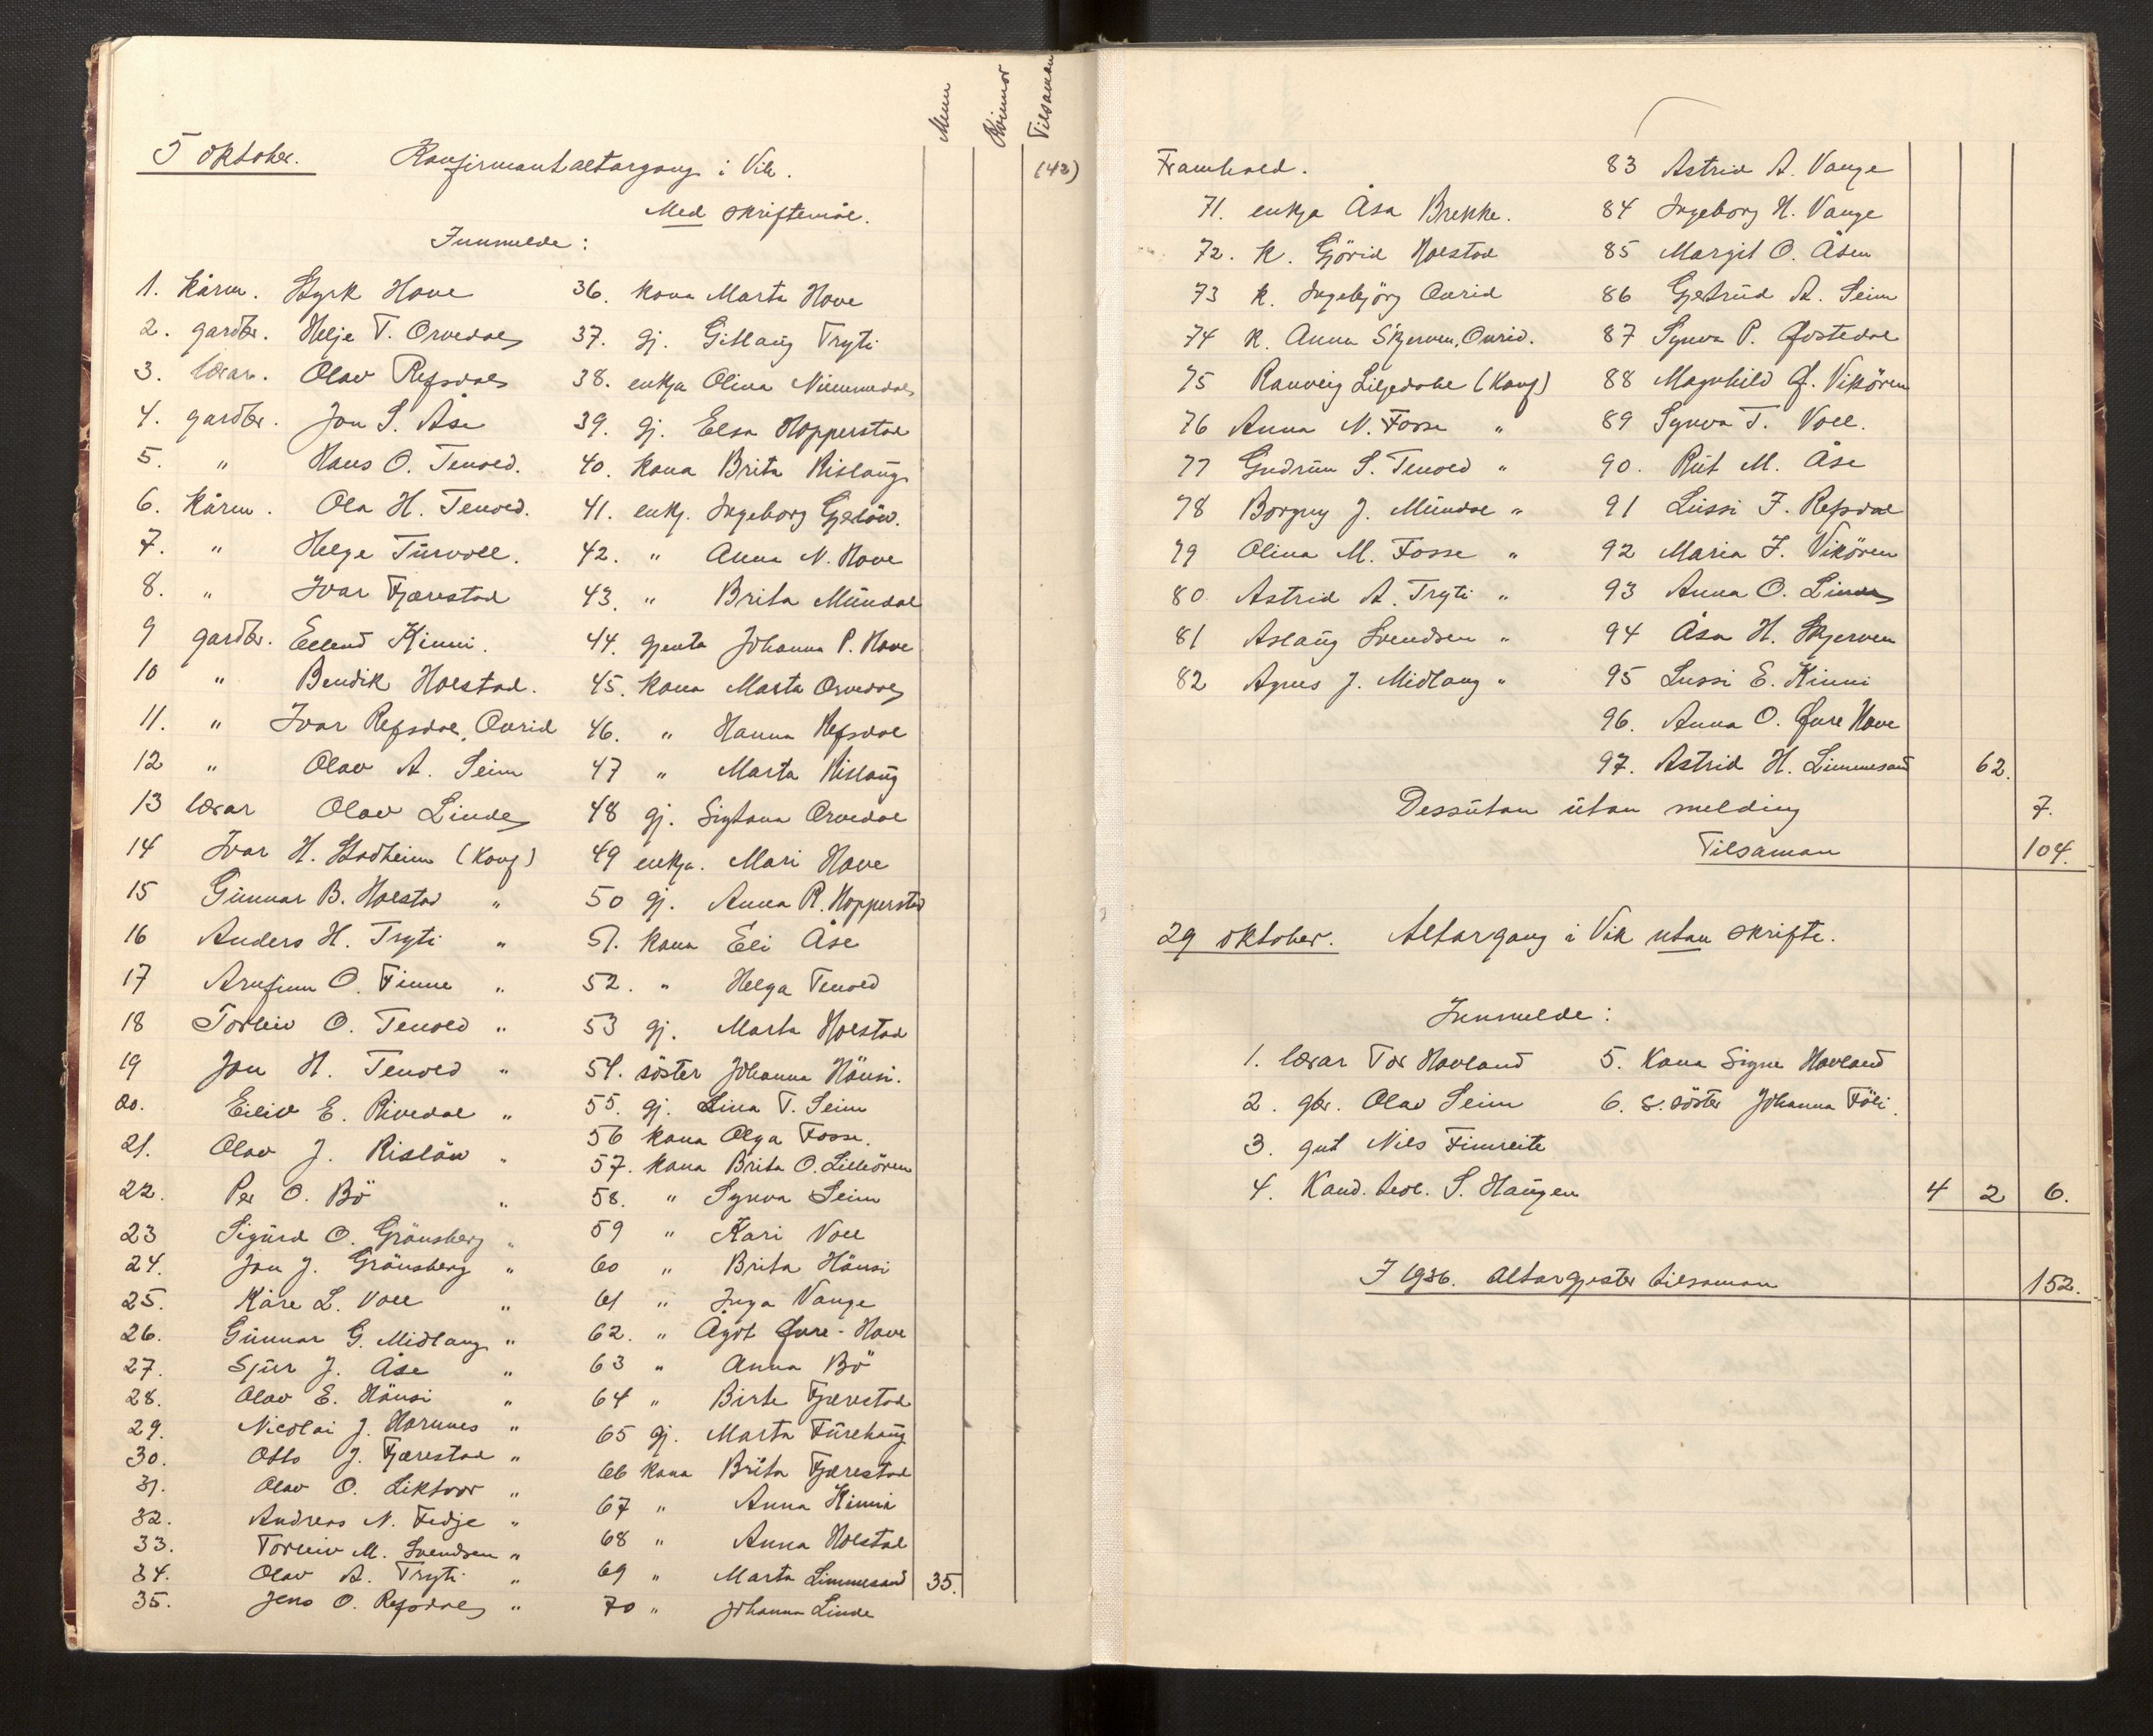 Menn Kvinnor Tilsaman
5 oktober. Konfirmantaltargang i Vik. (42)
Med skriftemål.
Innmelde:
1. kårm. Styrk Hove
2. gardbr. Helje T. Orvedal
3. lærar. Olav Refsdal
4. gardbr. Jon S. Åse
5. " Hans O. Tenold.
6. Kårm. Ola H. Tenold.
7. " Helge Turvoll.
8. " Ivar Fjærestad
9 gardbr. Erlend Kinni.
10 " Bendik Holstad.
11. " Ivar Refsdal, Ovrid
12 " Olav A. Seim
13 lærar Olav Linde
14 Ivar H. Stadheim (Konf)
15 Gunnar B. Holstad "
16 Anders H. Tryti "
17 Arnfinn O. Finne "
18 Torleiv O. Tenold "
19 Jon H. Tenold "
20. Eiliv E. Rivedal "
21. Olav J. Risløw "
22. Per O. Bö "
23 Sigurd O. Grönsberg "
24. Jon J. Grönsberg "
25. Kåre L. Voll "
26. Gunnar G. Midlang "
27. Sjur J. Åse "
28. Olav E. Hönsi "
29. Nicolai J. Hornnes "
30. Otto J. Fjærestad "
31. Olav O. Liktvor "
32. Andreas N. Fedje "
33. Torleiv M. Svendsen "
34. Olav A. Tryti "
35. Jens O. Refsdal "
36. kona Marta Hove
37. gj. Gitlaug Tryti
38. enkja Olina Nummedal
39. gj. Elsa Hopperstad
40. kona Brita Rislaug
41. enkj. Ingeborg Gjeløw.
42. " Anna N. Hove
43. " Brita Mundal
44. gjenta Johanna P. Hove
45. kona Marta Orvedal
46. " Hanna Refsdal
47 " Marta Rislaug
48 gj. Sigtana Orvedal
49 enkja. Mari Hove
50 gj. Anna R. Hopperstad
51. kona Eli Åse
52. " Helga Tenold
53 gj. Marta Holstad
54. söster Johanna Hönsi.
55. gj. Lina T. Seim
56 kona Olga Fosse.
57. kona Brita O. Lilleören
58. " Synva Seim
59 " Kari Voll
60 " Brita Hönsi
61 " Inga Vange
62. " Ågot Øvre-Hove
63 " Anna Bö
64 " Birte Fjærestad
65 gj. Marta Furehaug
66 kona Brita Fjærestad
67 " Anna Kinni
68 " Anna Holstad
69 " Marta Limmesand 35.
70 " Johanna Linde
Framhald.
71. enkja Åsa Brekke.
72. K. Gjörid Holstad
73 K. Ingebjörg Ovrid
74 K. Anna Skjerven, Ovrid.
75 Ranveig Liljedahl (Konf)
76 Anna N. Fosse "
77 Gudrun S. Tenold "
78 Borgny J. Mundal "
79 Olina M. Fosse "
80 Astrid A. Tryti "
81 Aslaug Svendsen "
82 Agnes J. Midlang "
83 Astrid A. Vange
84 Ingeborg H. Vange
85 Margit O. Åsen
86 Gjertrud A. Seim
87 Synva P. Østedal
88 Magnhild Ø. Vikören
89 Synva T. Voll.
90. Rut M. Åse
91 Lussi J. Refsdal
92 Maria J. Vikören
93 Anna O. Linde
94 Åsa H. Skjerven
95 Lussi E. Kinni
96. Anna O. Øvre Hove
97. Astrid H. Limmesand 62.
Dessutan utan melding 7.
Tilsaman 104.
29 oktober. Altargang i Vik utan skrifte.
Innmelde:
1. lærar Tor Hovland
2. gbr. Olav Seim
3. gut Nils Finreite
4. Kand. teol. S. Haugen
5. Kona Signe Hovland
6. s. söster Johanna Föli.
4 2 6.
I 1936. Altargjester tilsaman 152.